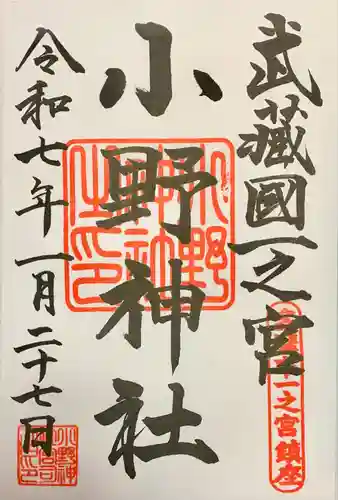 武蔵國一之宮
小野神社
令和七年一月二十七日
小野神社之印
一之宮鎮座